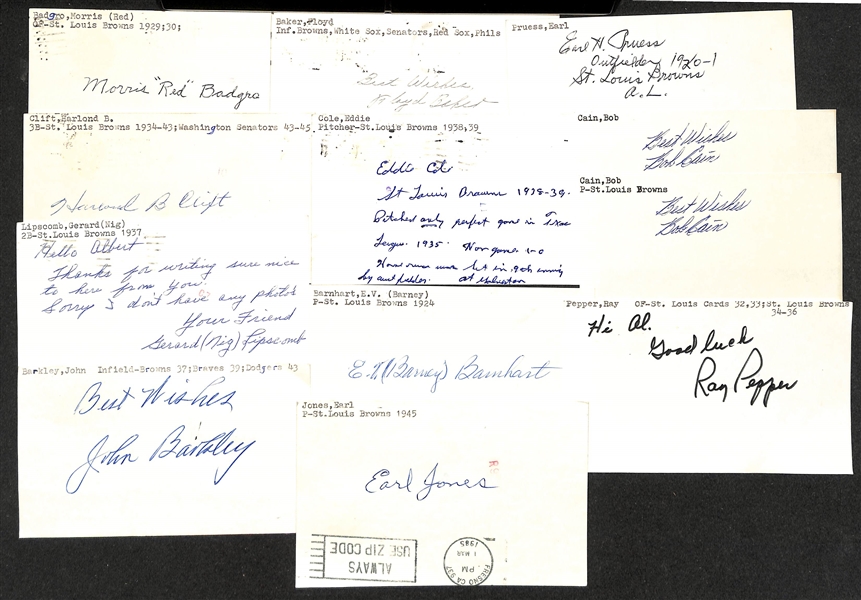 Badgro,Morris (Red)
OF-St. Louis Browns 1929;30;
Morris "Red" Badgro
Baker,Floyd
Inf.Browns,White Sox,Senators,Red Sox,Phils
Best Wishes
Floyd Baker
Pruess,Earl
Earl H. Pruess
Outfielder 1920-1
St. Louis Browns
A.L.
Clift,Harlond B.
3B-St. Louis Browns 1934-43;Washington Senators 43-45
Harlond B Clift
Cole,Eddie
Pitcher-St.Louis Browns 1938,39
Eddie Cole
St Louis Browns 1938-39.
Pitched only perfect game in Texas
League. 1935. Won game 1-0
Home run was hit in 9th inning
by at Galveston
Cain,Bob
Best Wishes
Bob Cain
Cain,Bob
P-St.Louis Browns
Best Wishes
Bob Cain
Lipscomb,Gerard(Nig)
2B-St.Louis Browns 1937
Hello Albert
Thanks for writing sure nice
to here from you.
Sorry I don't have any photos
Your Friend
Gerard(Nig) Lipscomb
Barnhart,E.V. (Barney)
P-St. Louis Browns 1924
E.V.(Barney) Barnhart
Pepper,Ray OF-St. Louis Cards 32,33;St. Louis Browns
34-36
Hi Al.
Good luck
Ray Pepper
Barkley,John Infield-Browns 37;Braves 39;Dodgers 43
Best Wishes
John Barkley
Jones,Earl
P-St.Louis Browns 1945
Earl Jones
ALWAYS
USE ZIP CODE
FRESNO CA 937
PM
1 MAR
1985